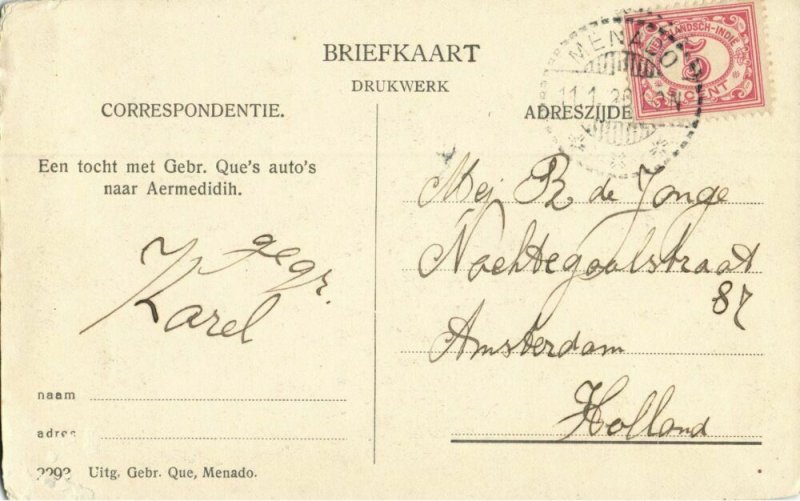 BRIEFKAART
DRUKWERK
CORRESPONDENTIE.
Een tocht met Gebr. Que's auto's
naar Aermedidih.
gegr.
Karel
naam
adres
2292 Uitg. Gebr. Que, Menado.
MENADO
11.1.
NEDERLANDSCH-INDIE
5
CENT
ADRESZIJDE
Mej R de Jonge
Nachtegaalstraat
87
Amsterdam
Holland